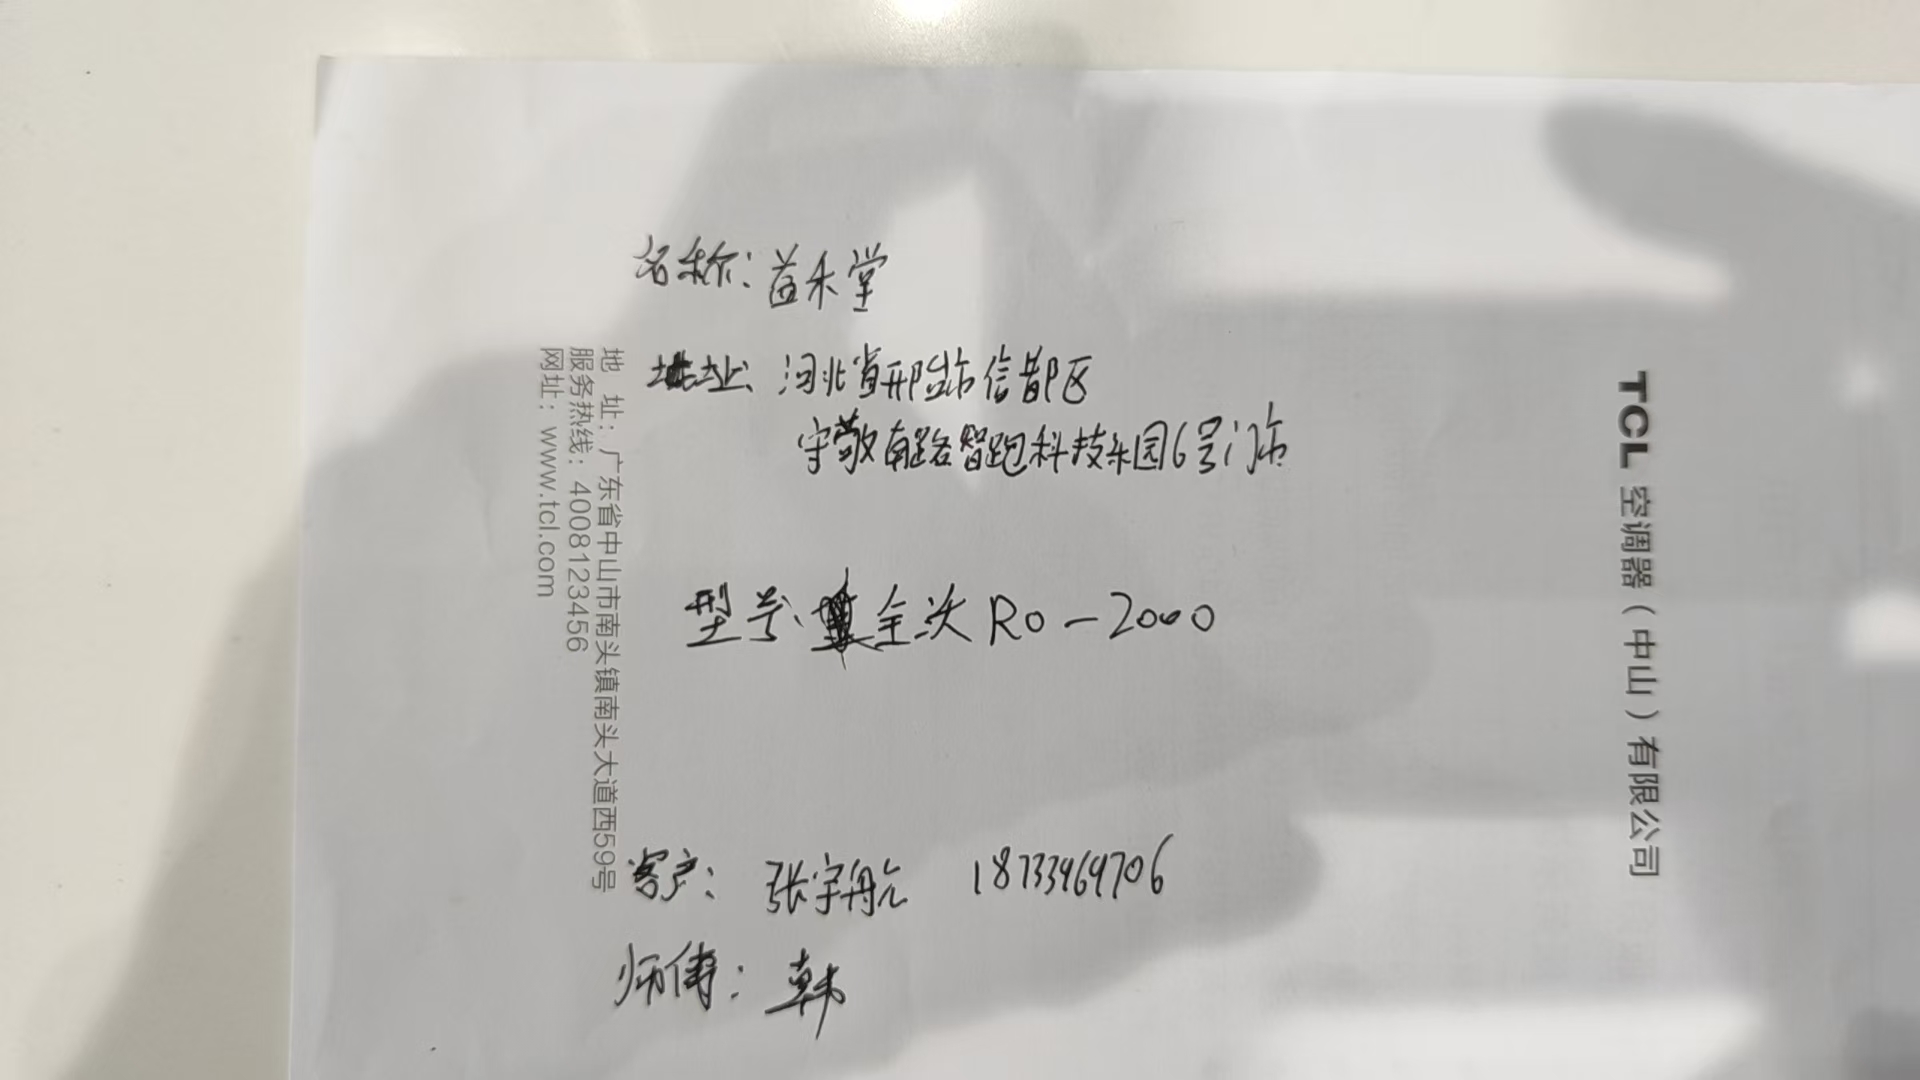 名称：益禾堂
地址：河北省邢台市信都区
守敬南路智跑科技乐园6号门市
型号：全沃RO-2000
客户：张宇航 18733969706
师傅：韩
TCL 空调器（中山）有限公司
地 址：广东省中山市南头镇南头大道西59号
服务热线：4008123456
网址：www.tcl.com